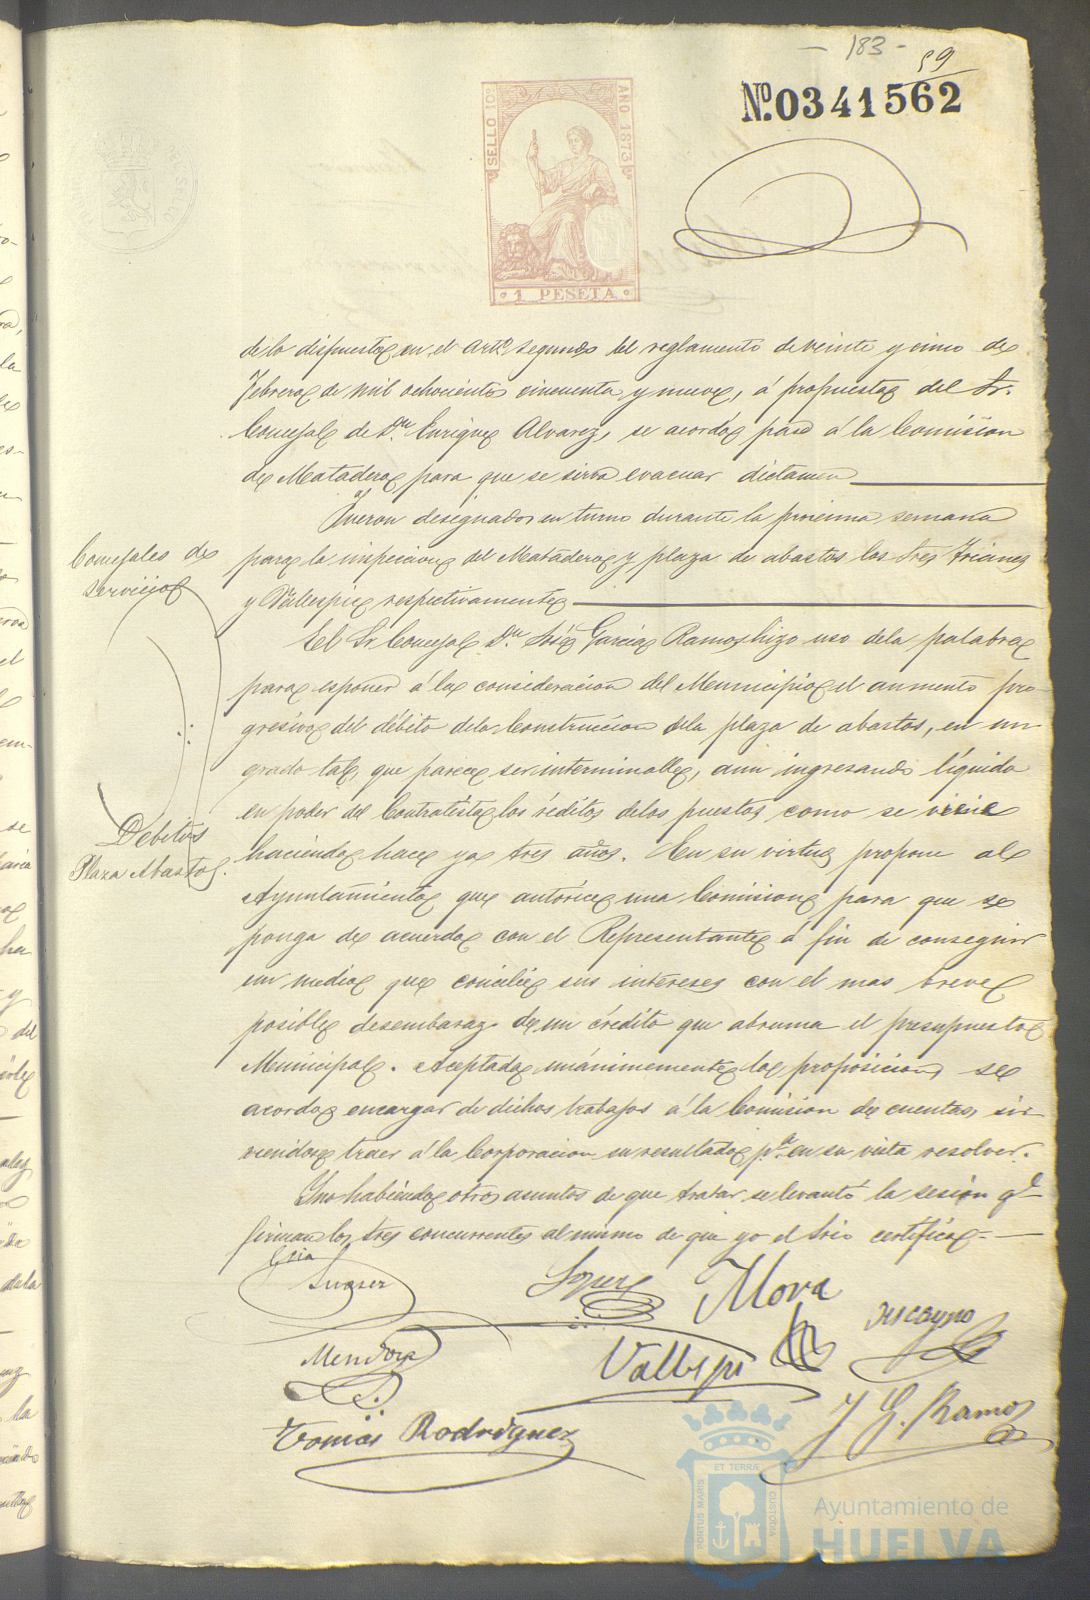 - 183 -
59
Nº. 0341562
SELLO 10º
AÑO 1873
1 PESETA
de lo dispuesto en el artº segundo del reglamento de veinte y cinco de
Febrero de mil ochocientos cincuenta y nueve, á propuesta del Sr.
Concejal de Dn Enrique Alvarez, se acordó pase á la Comision
de Matadero para que se sirva evacuar dictamen
Concejales de
servicio
Fueron designados en turno durante la procsima semana
para la inspeccion del Matadero y plaza de abastos los Sres
y Vallespir respectivamente
El Sr Concejal Dn José Garcia Ramos hizo uso dela palabra
para esponer á la consideracion del Municipio el aumento pro-
gresivo del débito dela Construccion dela plaza de abastos, en un
grado tal, que parece ser interminable, aun ingresando líquido
en poder del Contratista los réditos delos puestos como se viene
Debitos
Plaza Abastos.
haciendo hace ya tres años. En su virtud propone al
Ayuntamiento que autorice una Comision para que se
ponga de acuerdo con el Representante á fin de conseguir
un medio que concilie sus intereses con el mas breve
posible desembarazo de un crédito que abruma el presupuesto
Municipal. Aceptada unánimemente la proposicion, se
acordó encargar de dichos trabajos á la Comision de cuentas, sir-
viendose traer á la Corporacion su resultado pª en su vista resolver.
Y no habiendo otros asuntos de que tratar se levantó la sesion qe
firman los Sres concurrentes al mismo de que yo el Srio certifico.
Suarez
Lopez
Mora
Vizcayno
Mendoza
Vallespir
Tomás Rodriguez
J G. Ramos
PORTUS MARIS
ET TERRÆ
CUSTODIA
Ayuntamiento de
HUELVA